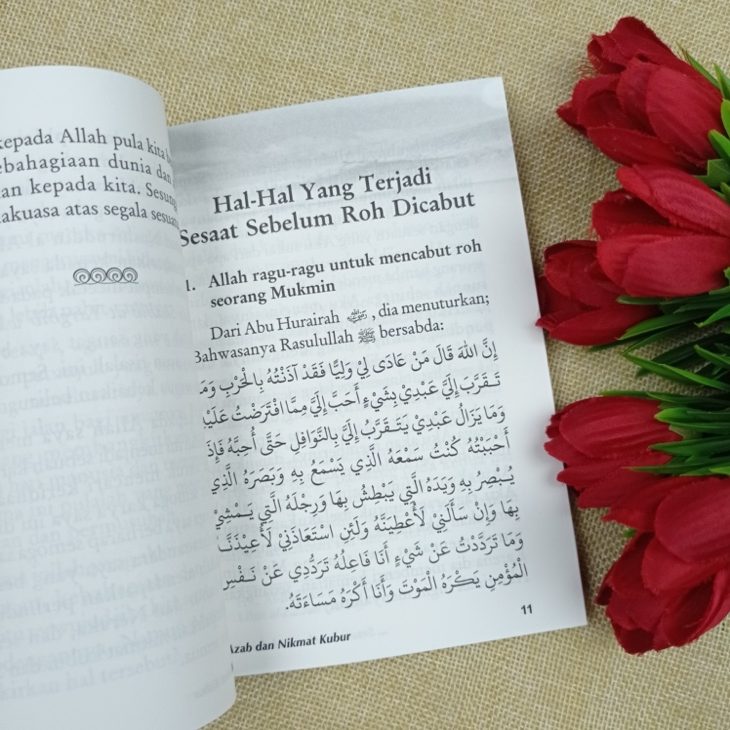 kepada Allah pula kita
ebahagiaan dunia dan
an kepada kita. Sesung
akuasa atas segala sesuat
Hal-Hal Yang Terjadi
Sesaat Sebelum Roh Dicabut
1. Allah ragu-ragu untuk mencabut roh
seorang Mukmin
Dari Abu Hurairah ﷺ, dia menuturkan;
Bahwasanya Rasulullah ﷺ bersabda:
إِنَّ اللهَ قَالَ مَنْ عَادَى لِيْ وَلِيًّا فَقَدْ آذَنْتُهُ بِالْحَرْبِ وَمَ
تَقَرَّبَ إِلَيَّ عَبْدِيْ بِشَيْءٍ أَحَبَّ إِلَيَّ مِمَّا افْتَرَضْتُ عَلَيْ
وَمَا يَزَالُ عَبْدِيْ يَتَقَرَّبُ إِلَيَّ بِالنَّوَافِلِ حَتَّى أُحِبَّهُ فَإِذَ
أَحْبَبْتُهُ كُنْتُ سَمْعَهُ الَّذِي يَسْمَعُ بِهِ وَبَصَرَهُ الَّذِيْ
يُبْصِرُ بِهِ وَيَدَهُ الَّتِي يَبْطِشُ بِهَا وَرِجْلَهُ الَّتِيْ يَمْشِيْ
بِهَا وَإِنْ سَأَلَنِيْ لَأُعْطِيَنَّهُ وَلَئِنِ اسْتَعَاذَنِيْ لَأُعِيْذَنَّـ
وَمَا تَرَدَّدْتُ عَنْ شَيْءٍ أَنَا فَاعِلُهُ تَرَدُّدِي عَنْ نَفْسِ
الْمُؤْمِنِ يَكْرَهُ الْمَوْتَ وَأَنَا أَكْرَهُ مَسَاءَتَهُ.
11
Azab dan Nikmat Kubur